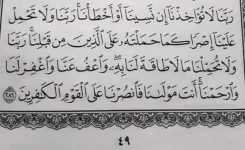 رَبَّنَا لَا تُؤَاخِذْنَآ إِن نَّسِينَآ أَوْ أَخْطَأْنَا ۚ رَبَّنَا وَلَا تَحْمِلْ
عَلَيْنَآ إِصْرًا كَمَا حَمَلْتَهُۥ عَلَى ٱلَّذِينَ مِن قَبْلِنَا ۚ رَبَّنَا
وَلَا تُحَمِّلْنَا مَا لَا طَاقَةَ لَنَا بِهِۦ ۖ وَٱعْفُ عَنَّا وَٱغْفِرْ لَنَا
وَٱرْحَمْنَآ ۚ أَنتَ مَوْلَىٰنَا فَٱنصُرْنَا عَلَى ٱلْقَوْمِ ٱلْكَٰفِرِينَ ٢٨٦
٤٩